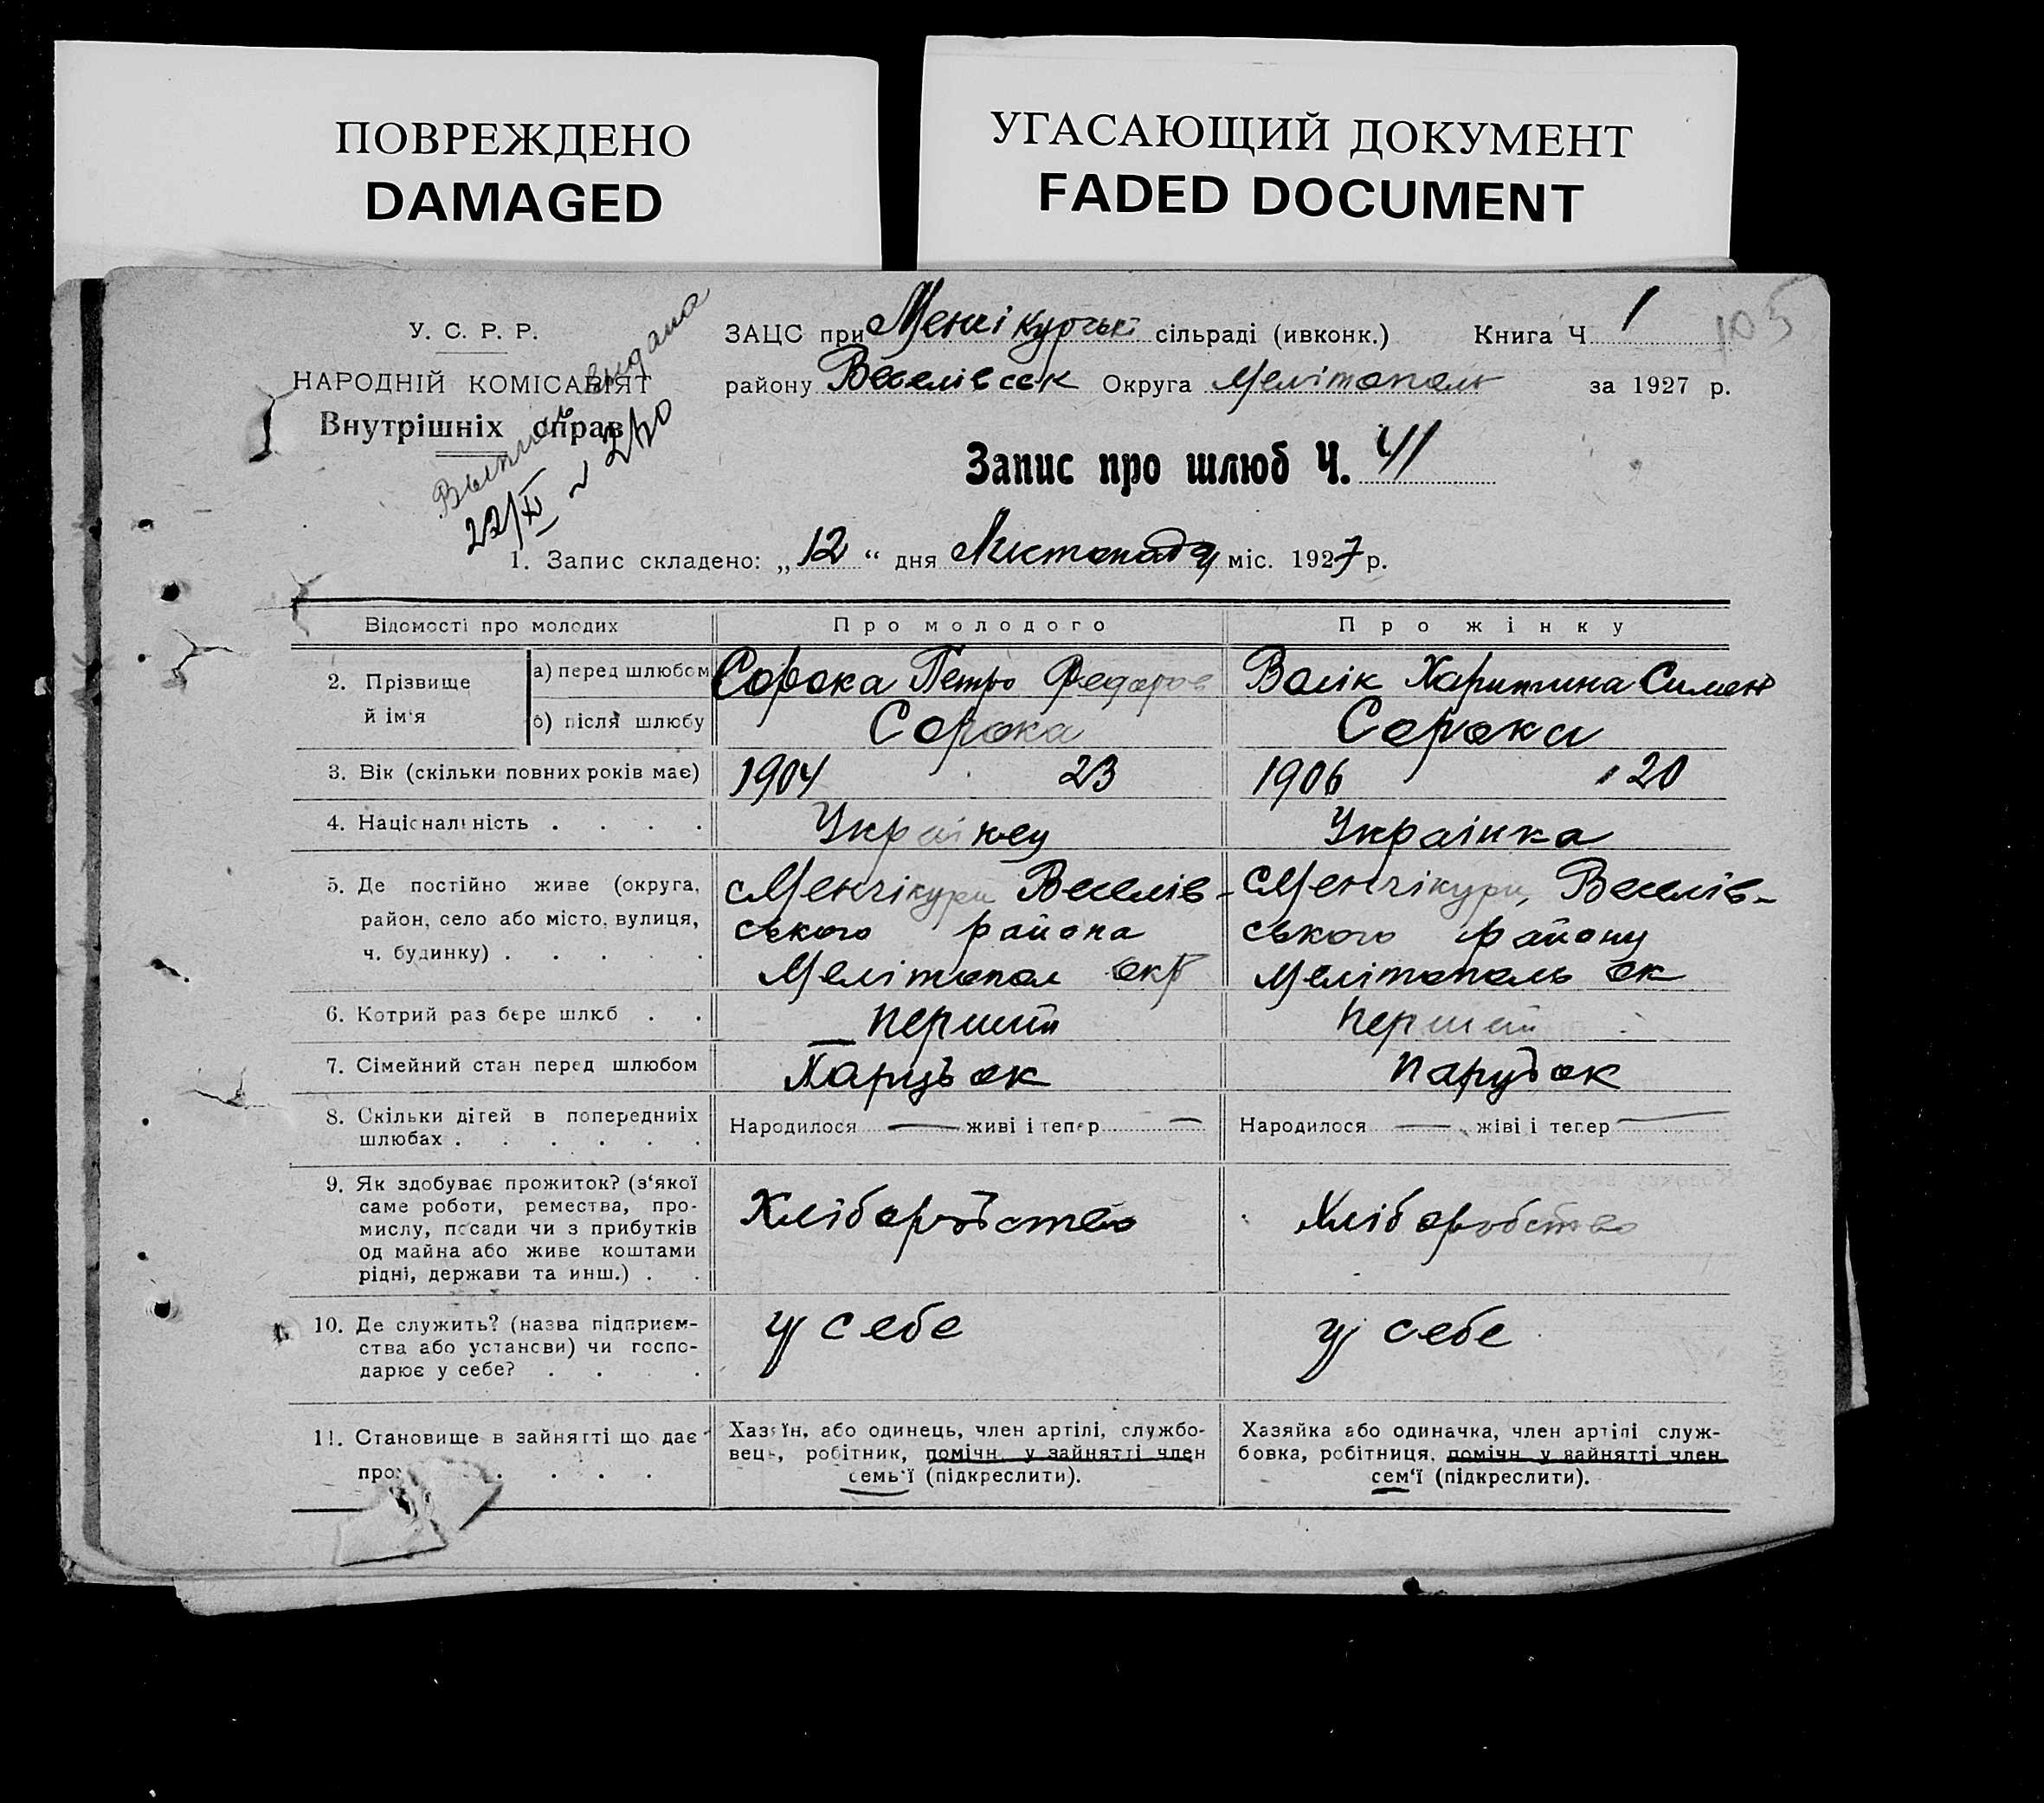 ПОВРЕЖДЕНО
DAMAGED
УГАСАЮЩИЙ ДОКУМЕНТ
FADED DOCUMENT
У. С. Р. Р.
НАРОДНІЙ КОМІСАРІЯТ
Внутрішніх справ
Выпись выдана
22/XI № 240
ЗАЦС при сільраді (ивконк.) Книга Ч 1
105
району Веселівськ Округа Мелітополь за 1927 р.
Запис про шлюб Ч. 41
1. Запис складено: „12“ дня Листопаду міс. 1927 р.
Відомості про молодих Про молодого Про жінку
2. Прізвище й ім'я
а) перед шлюбом Сорока Петро Федоров Волік Харитина Симен
б) після шлюбу Сорока Сорока
3. Вік (скільки повних років має) 1904 23 1906 20
4. Національність . . . . Українец Українка
5. Де постійно живе (округа, Менчікури Веселів- Менчікури, Веселів-
район, село або місто, вулиця, ського района ського району
ч. будинку) . . . . . Мелітопол окр Мелітополь ок
6. Котрий раз бере шлюб . . перший перший
7. Сімейний стан перед шлюбом Парубок парубок
8. Скільки дітей в попередниіх Народилося — живі і тепер — Народилося — жіві і тепер —
шлюбах . . . . . .
9. Як здобуває прожиток? (з'якої
саме роботи, ремества, про- Хліборобство Хліборобство
мислу, посади чи з прибутків
од майна або живе коштами
рідні, держави та инш.) . .
10. Де служить? (назва підприєм- у себе у себе
ства або установи) чи госпо-
дарює у себе? . . . .
11. Становище в зайнятті що дає Хазяїн, або одинець, член артілі, службо- Хазяйка або одиначка, член артілі служ-
про . . . . вець, робітник, помічн. у зайнятті член бовка, робітниця, помічн. у зайнятті член
семь'ї (підкреслити). сем'ї (підкреслити).